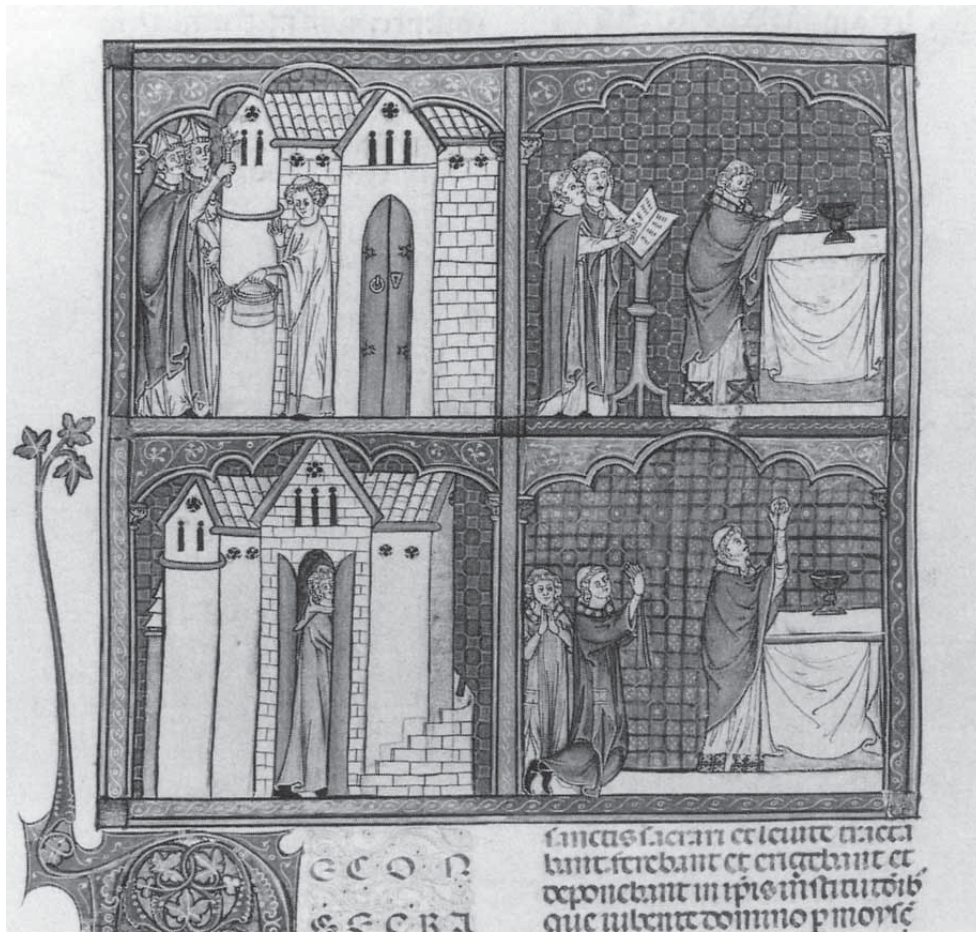 D E C O N
S E C R A
sanctis sacrari et leuite tracta
bant. ferebant et erigebant et
deponebant in ip̄is
que iubente domino p moysē